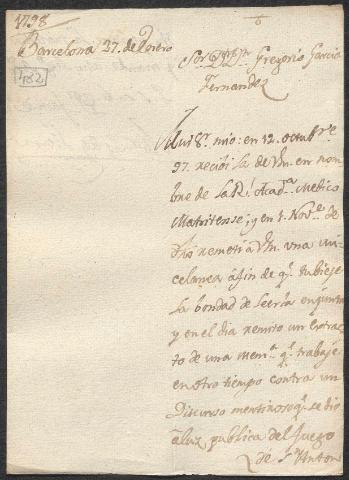 1798
Barcelona 27. de Enero
182
Sor Dn Gregorio Garcia
Fernandez
Mui Sr. mio: en 12 octubre
97. recibi la de Vm. en nom
bre de la Rl. Acada. Medico
Matritense; y en 1. Nove. de
dho remeti a Vm. una mi
celanea afin de qe. tubiese
la bondad de leerla en junta
y en el dia remito un extrac
to de una mema. qe. trabajé
en otro tiempo contra un
Discurso mentiroso qe. se dio
à luz publica del fuego
de Sn. Anton